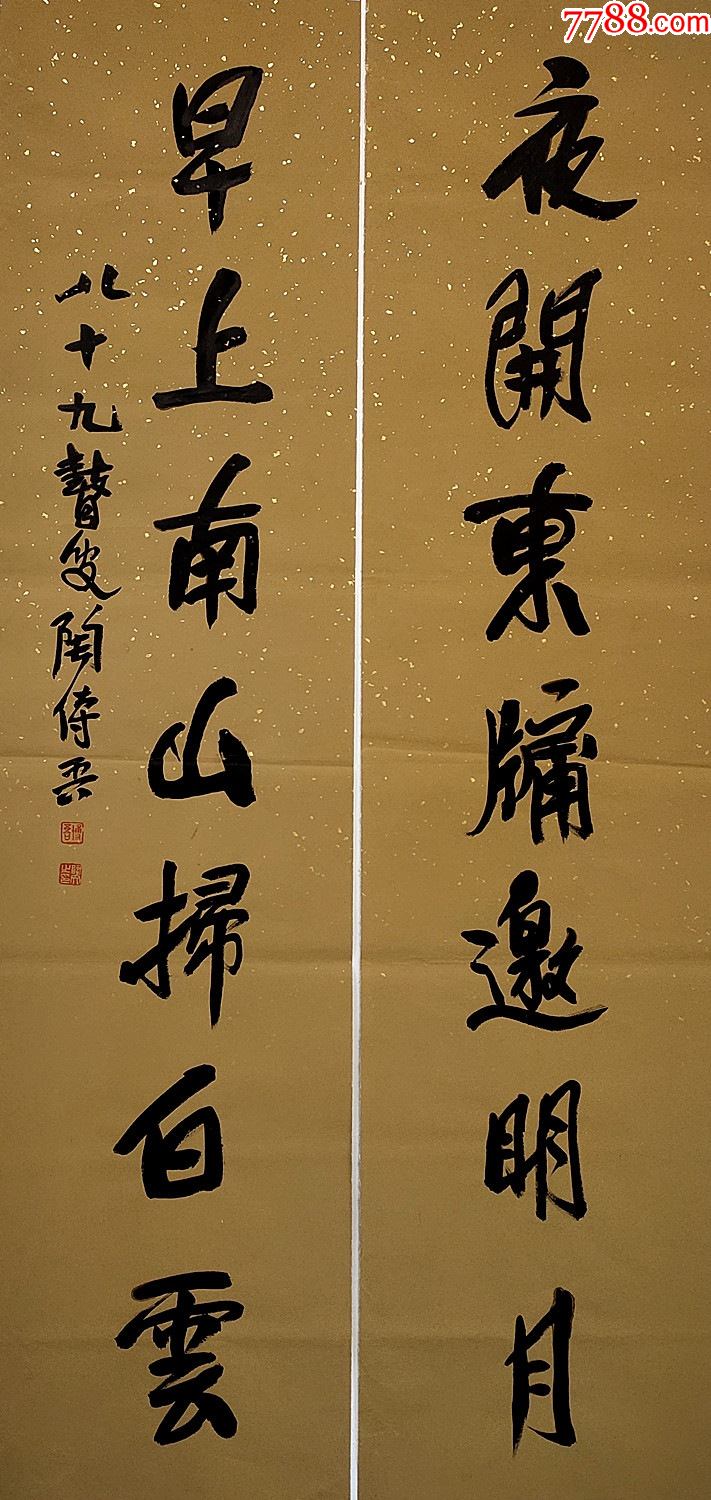 7788.com
夜開東牖邀明月
早上南山掃白雲
八十九瞽叟陶博吾